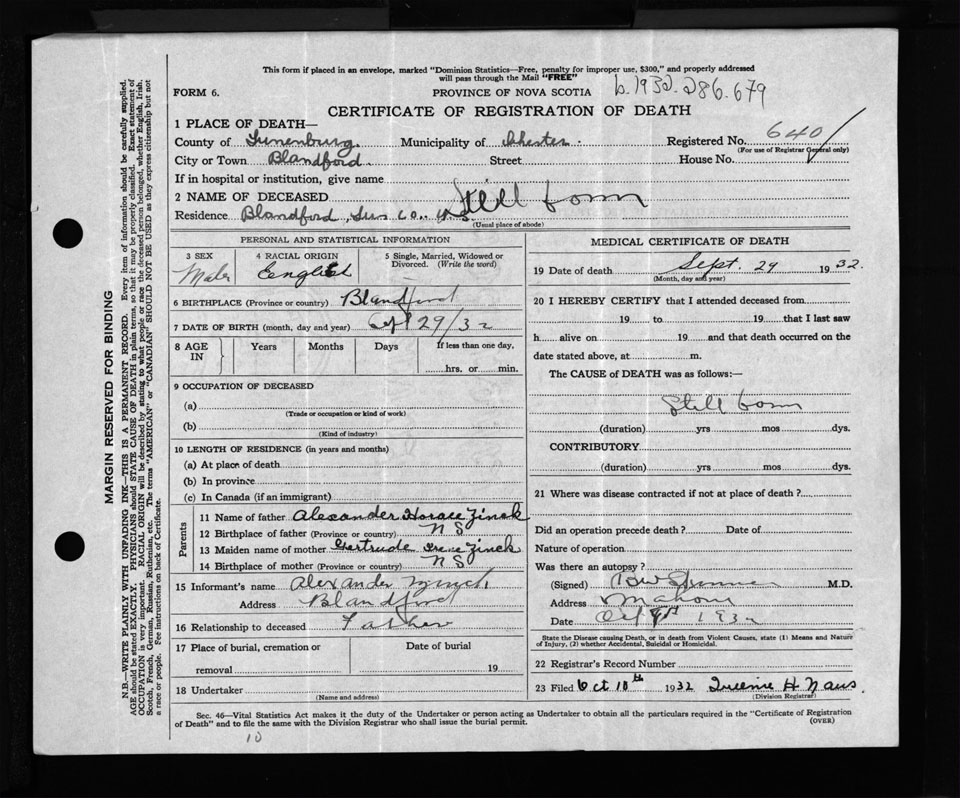 This form if placed in an envelope, marked "Dominion Statistics—Free, penalty for improper use, $300," and properly addressed
will pass through the Mail "FREE"
FORM 6. PROVINCE OF NOVA SCOTIA b.1932.286.679
CERTIFICATE OF REGISTRATION OF DEATH
1 PLACE OF DEATH—
County of Lunenburg Municipality of Chester Registered No. 640
(For use of Registrar General only)
City or Town Blandford Street House No.
If in hospital or institution, give name
2 NAME OF DECEASED Still born
Residence Blandford, Lun Co. N.S.
(Usual place of abode)
PERSONAL AND STATISTICAL INFORMATION
3 SEX 4 RACIAL ORIGIN 5 Single, Married, Widowed or
Male English Divorced. (Write the word)
6 BIRTHPLACE (Province or country) Blandford
7 DATE OF BIRTH (month, day and year) Sept 29/32
8 AGE Years Months Days If less than one day,
IN hrs. or min.
9 OCCUPATION OF DECEASED
(a)
(Trade or occupation or kind of work)
(b)
(Kind of industry)
10 LENGTH OF RESIDENCE (in years and months)
(a) At place of death
(b) In province
(c) In Canada (if an immigrant)
Parents
11 Name of father Alexander Horace Zinck
12 Birthplace of father (Province or country) N S
13 Maiden name of mother Gertrude Irene Zinck
14 Birthplace of mother (Province or country) N S
15 Informant's name Alexander Zinck
Address Blandford
16 Relationship to deceased Father
17 Place of burial, cremation or Date of burial
removal 19
18 Undertaker
(Name and address)
MEDICAL CERTIFICATE OF DEATH
19 Date of death Sept. 29 1932.
(Month, day and year)
20 I HEREBY CERTIFY that I attended deceased from
19 to 19 that I last saw
h alive on 19 and that death occurred on the
date stated above, at m.
The CAUSE of DEATH was as follows:—
Still born
(duration) yrs mos dys.
CONTRIBUTORY
(duration) yrs mos dys.
21 Where was disease contracted if not at place of death?
Did an operation precede death? Date of
Nature of operation
Was there an autopsy?
(Signed) M.D.
Address Mahone
Date 1932
State the Disease causing Death, or in death from Violent Causes, state (1) Means and Nature
of Injury, (2) whether Accidental, Suicidal or Homicidal.
22 Registrar's Record Number
23 Filed Oct 10th 1932 Queenie H Naus
(Division Registrar)
Sec. 46—Vital Statistics Act makes it the duty of the Undertaker or person acting as Undertaker to obtain all the particulars required in the "Certificate of Registration
of Death" and to file the same with the Division Registrar who shall issue the burial permit. (OVER)
10
MARGIN RESERVED FOR BINDING
N.B.—WRITE PLAINLY WITH UNFADING INK—THIS IS A PERMANENT RECORD. Every item of information should be carefully supplied.
AGE should be stated EXACTLY. PHYSICIANS should STATE CAUSE OF DEATH in plain terms, so that it may be properly classified. Exact statement of
OCCUPATION is very important. RACIAL ORIGIN will be described by stating to what people or race the deceased person belonged, whether English, Irish,
Scotch, French, German, Russian, Ruthenian, etc. The terms "AMERICAN" or "CANADIAN" SHOULD NOT BE USED as they express citizenship but not
a race or people. Fee instructions on back of Certificate.